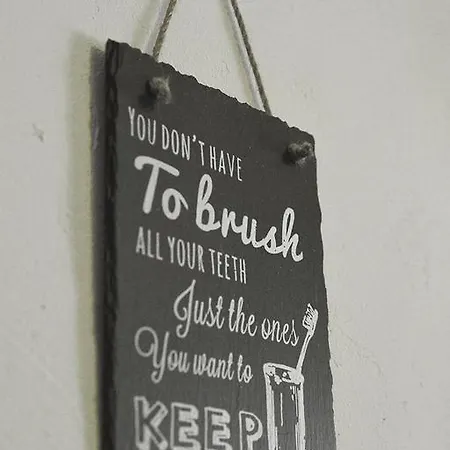 YOU DON'T HAVE
To brush
ALL YOUR TEETH
Just the ones
You want to
KEEP